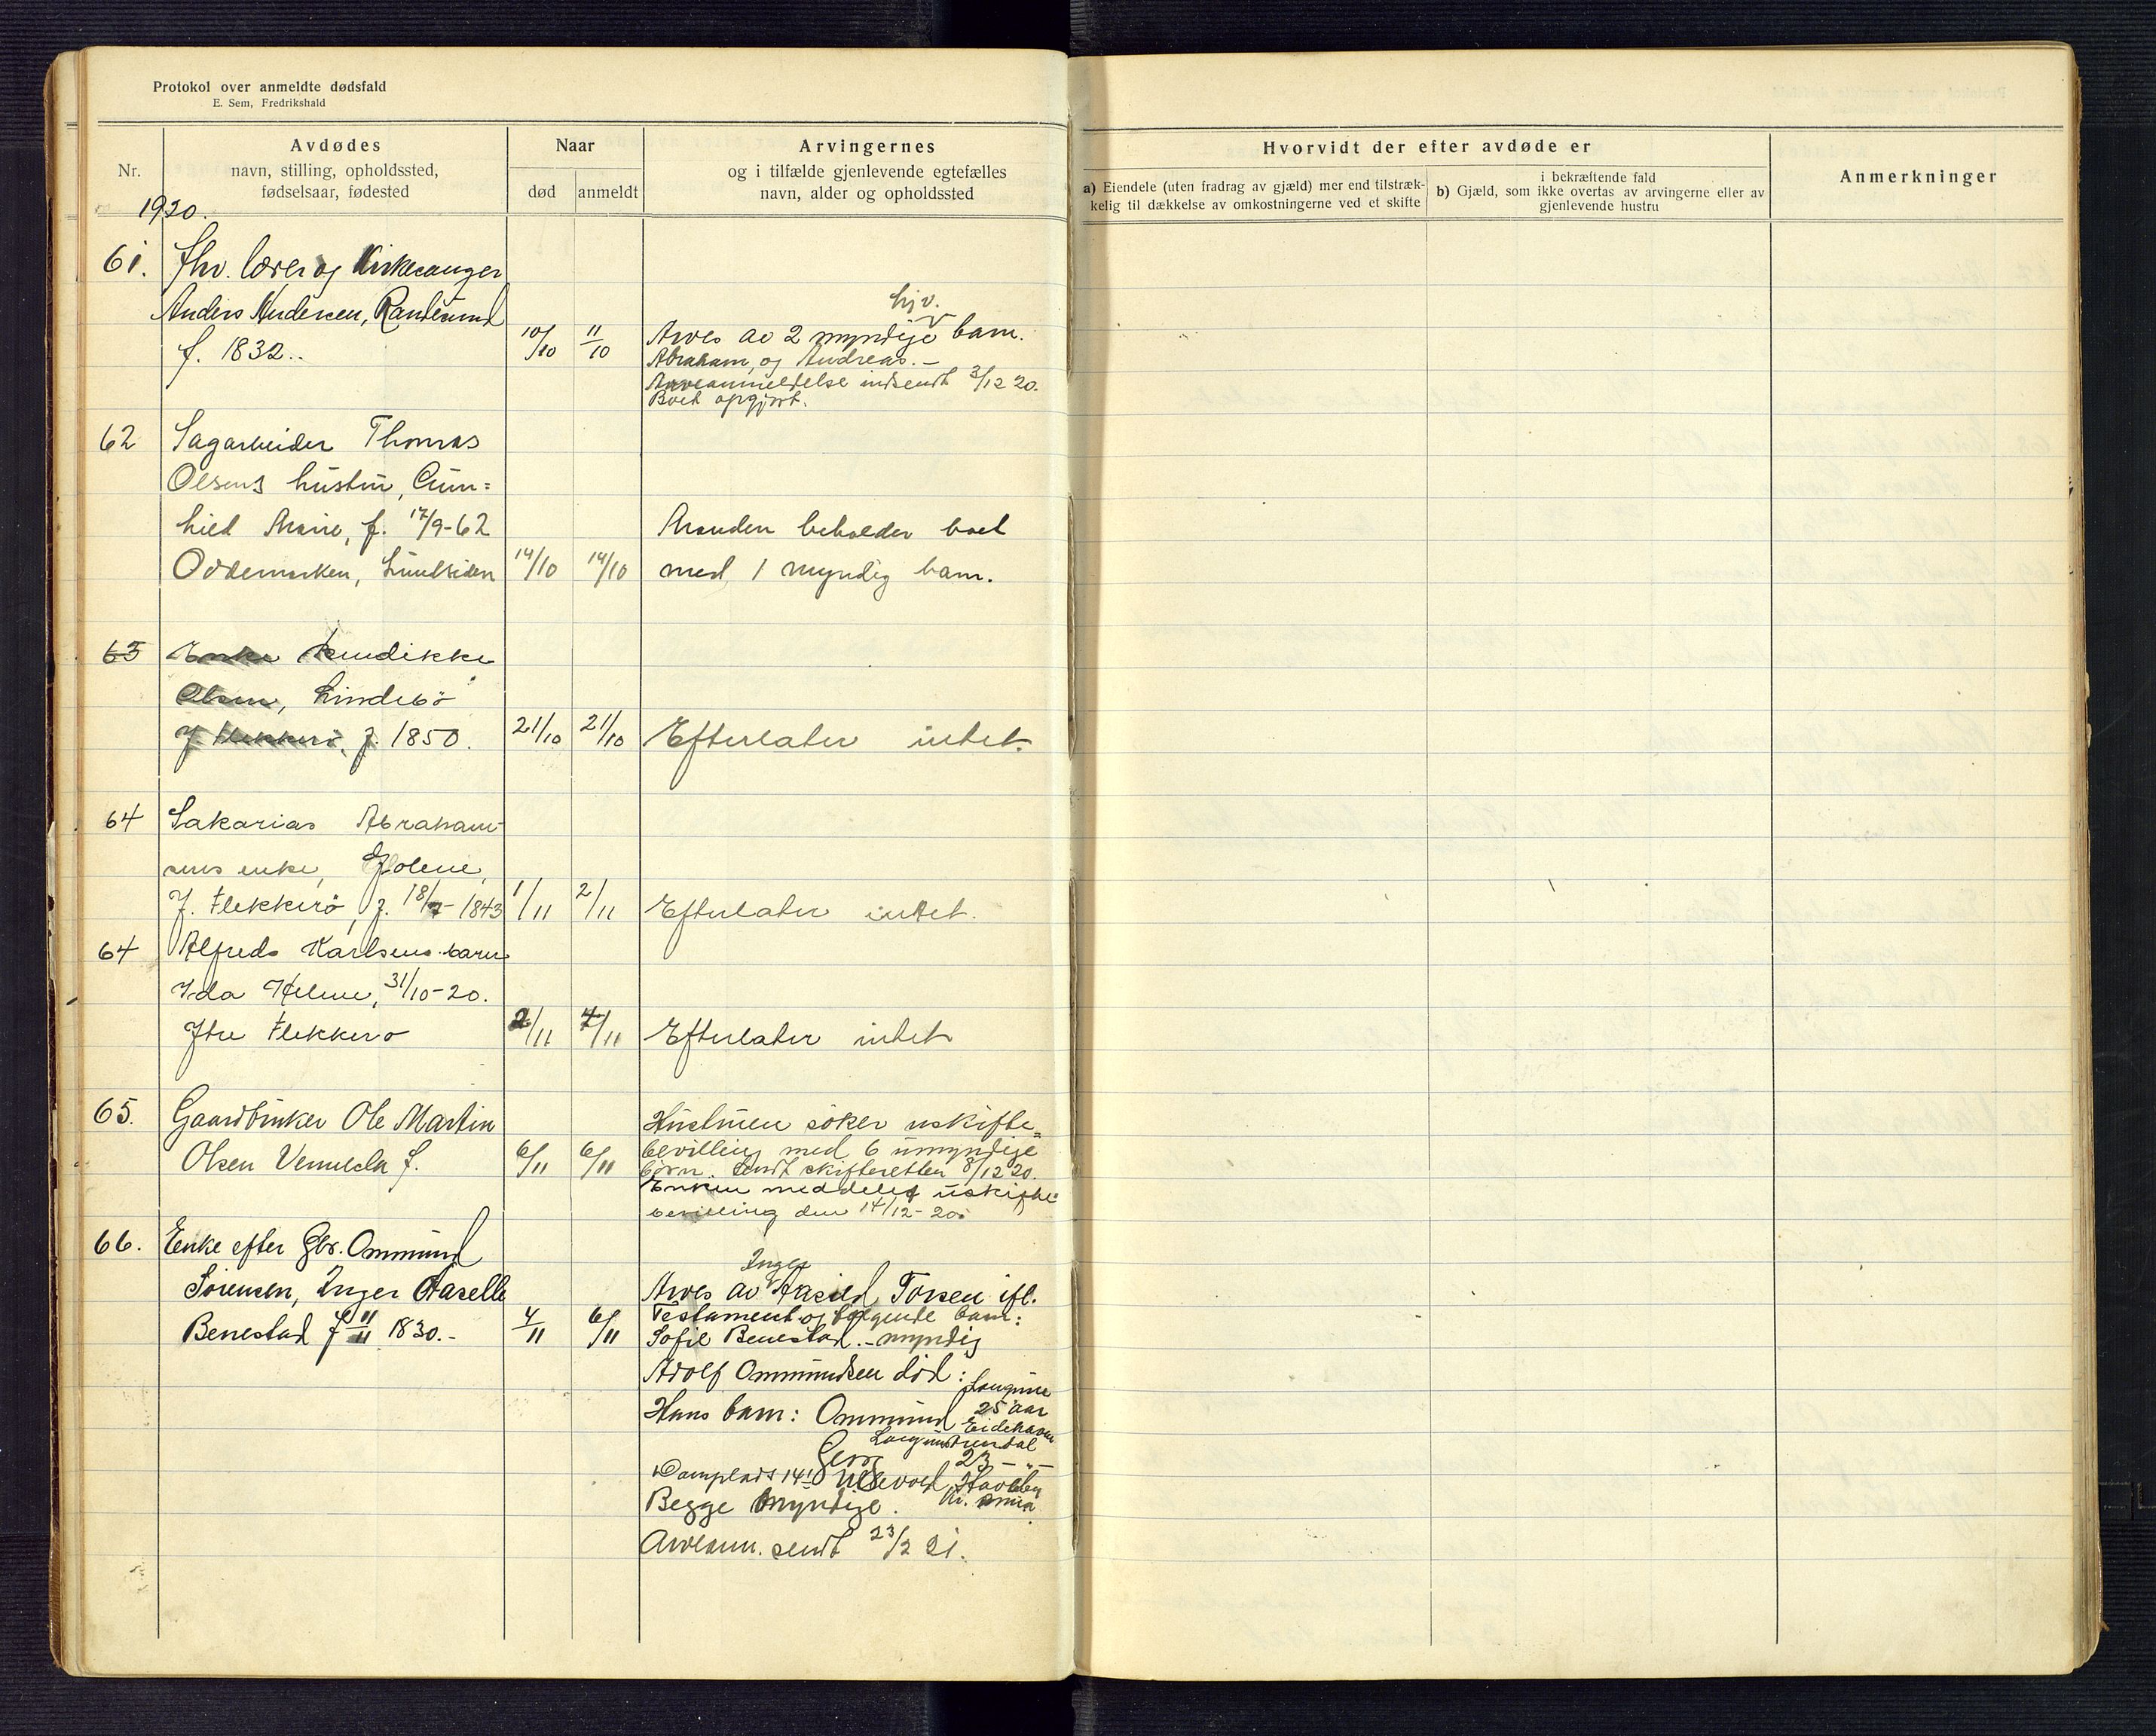 Protokol over anmeldte dødsfald
E. Sem, Fredrikshald
Nr.
Avdødes
navn, stilling, opholdssted,
fødselsaar, fødested
Naar
død
anmeldt
Arvingernes
og i tilfælde gjenlevende egtefælles
navn, alder og opholdssted
Hvorvidt der efter avdøde er
a) Eiendele (uten fradrag av gjæld) mer end tilstræk-
kelig til dækkelse av omkostningerne ved et skifte
i bekræftende fald
b) Gjæld, som ikke overtas av arvingerne eller av
gjenlevende hustru
Anmerkninger
1920.
61. fhv. lærer og Kirkesanger
Anders Andersen, Randesund
f. 1832.. 10/10 11/10
hjv.
Arves av 2 myndige barn.
Abraham, og Andreas. -
Arveanmeldelse indsendt 3/12 20.
Boet opgjort.
62 Sagarbeider Thomas
Olsens hustru, Gun=
hild Marie, f. 17/9-62
Oddemarken, Lundsiden 14/10 14/10
Manden beholder boet
med 1 myndig barn.
63 Enke Bendikke
Olsen, Lindebö
Y. Flekkerö, f. 1850. 21/10 21/10 Efterlater intet.
64 Sakarias Abraham-
sens enke, Jolene,
Y. Flekkerö, f. 18/7-1843 1/11 2/11 Efterlater intet.
64 Alfreds Karlsens barn
Ida Helene, 31/10-20.
Ytre Flekkerö 2/11 4/11 Efterlater intet
65. Gaardbruker Ole Martin
Olsen Vennesla f. 6/11 6/11
Hustruen söker uskifte=
bevilling med 6 umyndige
börn. Sendt skifteretten 8/12 20.
Enken meddelet uskifte
bevilling den 14/12-20.
66. Enke efter Gbr. Ommund
Sörensen, Inger Aaselle
Benestad f 11/11 1830.- 4/11 6/11
Inger
Arves av Aasild Torsen ifl.
Testament og fölgende barn:
Sofie Benestad. - myndig
Adolf Ommundsen död:
Hans barn: Ommund
25 aar
Eidehavn
Georg 23 -"-
Begge myndige.
Arveanm. sendt 23/2 21.